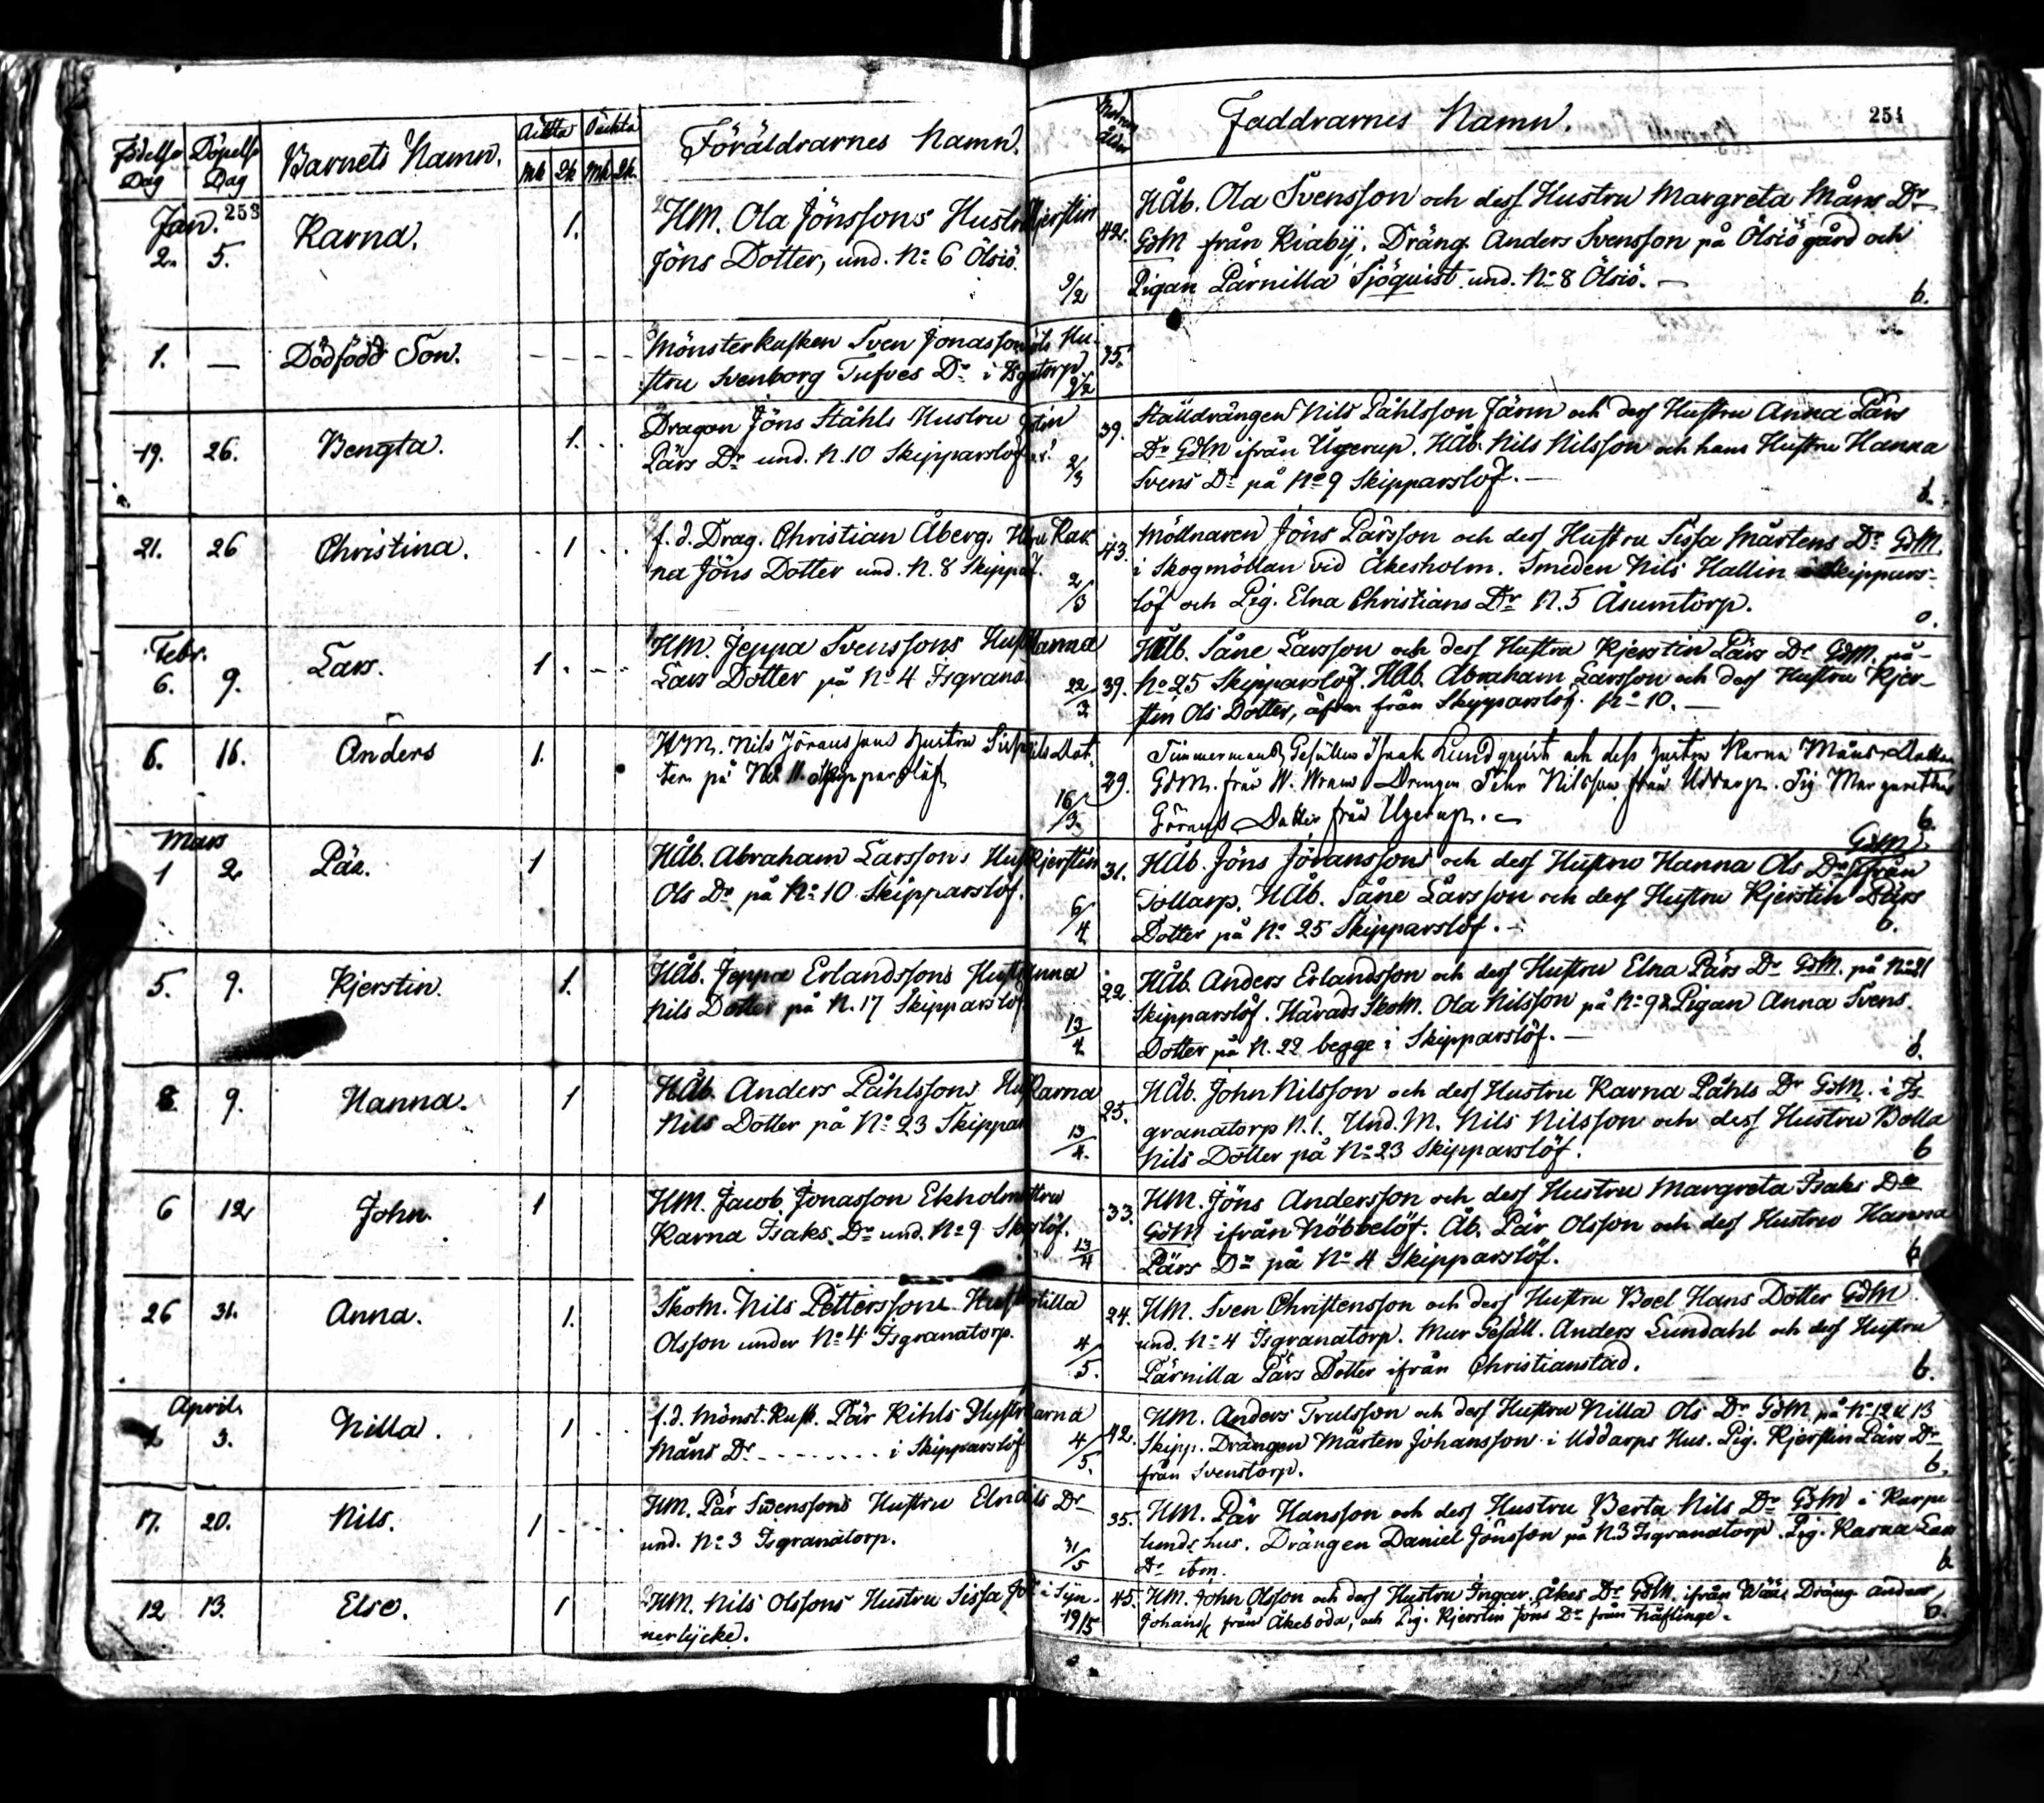 Födelse Dag Döpelse Dag Barnets Namn. Äckta Oäckta Föräldrarnes Namn.
Mk Qk Mk Qk
Jan. 253
2. 5. Karna. 1. HM. Ola Jönssons Hustru Kjerstin
Jöns Dotter, und. No 6 Ölsiö.
1. — Dödfödd Son. Mönsterkusken Sven Jonasson
stru Svenborg Tufves Dr i
19. 26. Bengta. 1. Dragon Jöns Ståhls Hustru
Pärs Dr und. N. 10 Skipparslöf
21. 26 Christina. 1 f.d. Drag. Christian Åbergs Kar
na Jöns Dotter und. N. 8
Febr.
6. 9. Lars. 1 HM. Jeppa Svenssons Hanna
Lars Dotter på No 4
6. 16. Anders 1. HM. Nils Jöranssons Hustru
ter på No 11. Skipparslöf
Mars
1 2 Pär. 1 HÅb. Abraham Larssons Kjerstin
Ols Dr på No 10 Skipparslöf.
5. 9. Kjerstin. 1. HÅb. Jeppa Erlandssons
Nils Dotter på N. 17 Skipparslöf
8. 9. Hanna. 1 HÅb. Anders Påhlssons Karna
Nils Dotter på No 23
6 12 John. 1 HM. Jacob Jonasson Ekholms
Karna Isaks Dr und. No 9
26 31. Anna. 1. SkoM. Nils Petterssons
Olsson under No 4 Isgranatorp.
April
3. Nilla. 1 f.d. Mönst. Kusk. Pär Kihls
Måns Dr - - - - i Skipparslöf
17. 20. Nils. 1 HM. Pär Swenssons Hustru Elna Dr
und. No 3 Isgranatorp.
12 13. Else. 1 HM. Nils Olssons Hustru Sissa i Syn-
nerlycke.
Modrens ålder Faddrarnes Namn. 254
42. HÅb. Ola Svensson och dess Hustru Margreta Måns Dr
GdM från Kiaby, Dräng Anders Svensson på Ölsiö gård och
9/2 Pigan Pärnilla Sjöquist und. No 8 Ölsiö. — b.
35.
9/2
39. Stalldrängen Nils Påhlsson Järm och dess Hustru Anna Pärs
Dr GdM ifrån Ugerup. HÅb. Nils Nilsson och hans Hustru Hanna
2/3 Svens Dr på No 9 Skipparslöf. —
43. Möllnaren Jöns Pärsson och dess Hustru Sissa Mårtens Dr GdM.
i Skogmöllan vid Åkesholm. Smeden Nils Hallin i Skippars-
2/3 löf och Pig. Elna Christians Dr N. 5 Åsumtorp.
HÅb. Såne Larsson och dess Hustru Kjerstin Pärs Dr GdM. på
22/3 39. No 25 Skipparslöf. HÅb. Abraham Larsson och dess Hustru Kjer-
stin Ols Dotter, äfven från Skipparslöf. No 10. —
Timmermans Gesällen Isaak Lundquist och dess Hustru Karna Måns Dotter
29. GdM. från W. Wram Drengen Pehr Nilsson från Uddarp. Pig Margaretha
16/3 Görans Dotter från Ugerup. b.
31. HÅb. Jöns Jöransson och dess Hustru Hanna Ols Dr GdM ifrån
6/4 Tollarp. HÅb. Såne Larsson och dess Hustru Kjerstin Pärs
Dotter på No 25 Skipparslöf. — b.
22. HÅb. Anders Erlandsson och dess Hustru Elna Pärs Dr GdM. på No 21
Skipparslöf. Härads SkoM. Ola Nilsson på No 9 & Pigan Anna Svens
13/4 Dotter på N. 22 begge i Skipparslöf. —
25. HÅb. John Nilsson och dess Hustru Karna Påhls Dr GdM. i Is-
granatorp N. 1. Und. M. Nils Nilsson och dess Hustru Bolla
13/4. Nils Dotter på No 23 Skipparslöf. b
33. HM. Jöns Andersson och dess Hustru Margreta Isaks Dr
GdM ifrån Nöbbelöf. Åb. Pär Olsson och dess Hustru Hanna
13/4 Pärs Dr på No 4 Skipparslöf. b
24. HM. Sven Christensson och dess Hustru Boel Hans Dotter GdM
und. No 4 Isgranatorp. Mur Gesäll. Anders Lundahl och dess Hustru
4/5. Pärnilla Pärs Dotter ifrån Christianstad. b.
42. HM. Anders Trulsson och dess Hustru Nilla Ols Dr GdM på No 12 & 13
4/5. Skipp. Drängen Mårten Johansson i Uddarps Hus. Pig. Kjerstin Pärs Dr
från Svenstorp. b.
35. HM. Pär Hansson och dess Hustru Berta Nils Dr GdM i Karpa
lunds hus. Drängen Daniel Jönsson på N. 3 Isgranatorp. Pig. Karna Lars
31/5 Dr ibm. b
45. HM. John Olsson och dess Hustru Ingar Åkes Dr GdM. ifrån Wää. Dräng Anders
19/5 Johanss. från Åkeboda, och Pig. Kjerstin Jöns Dr från Häflinge. b.